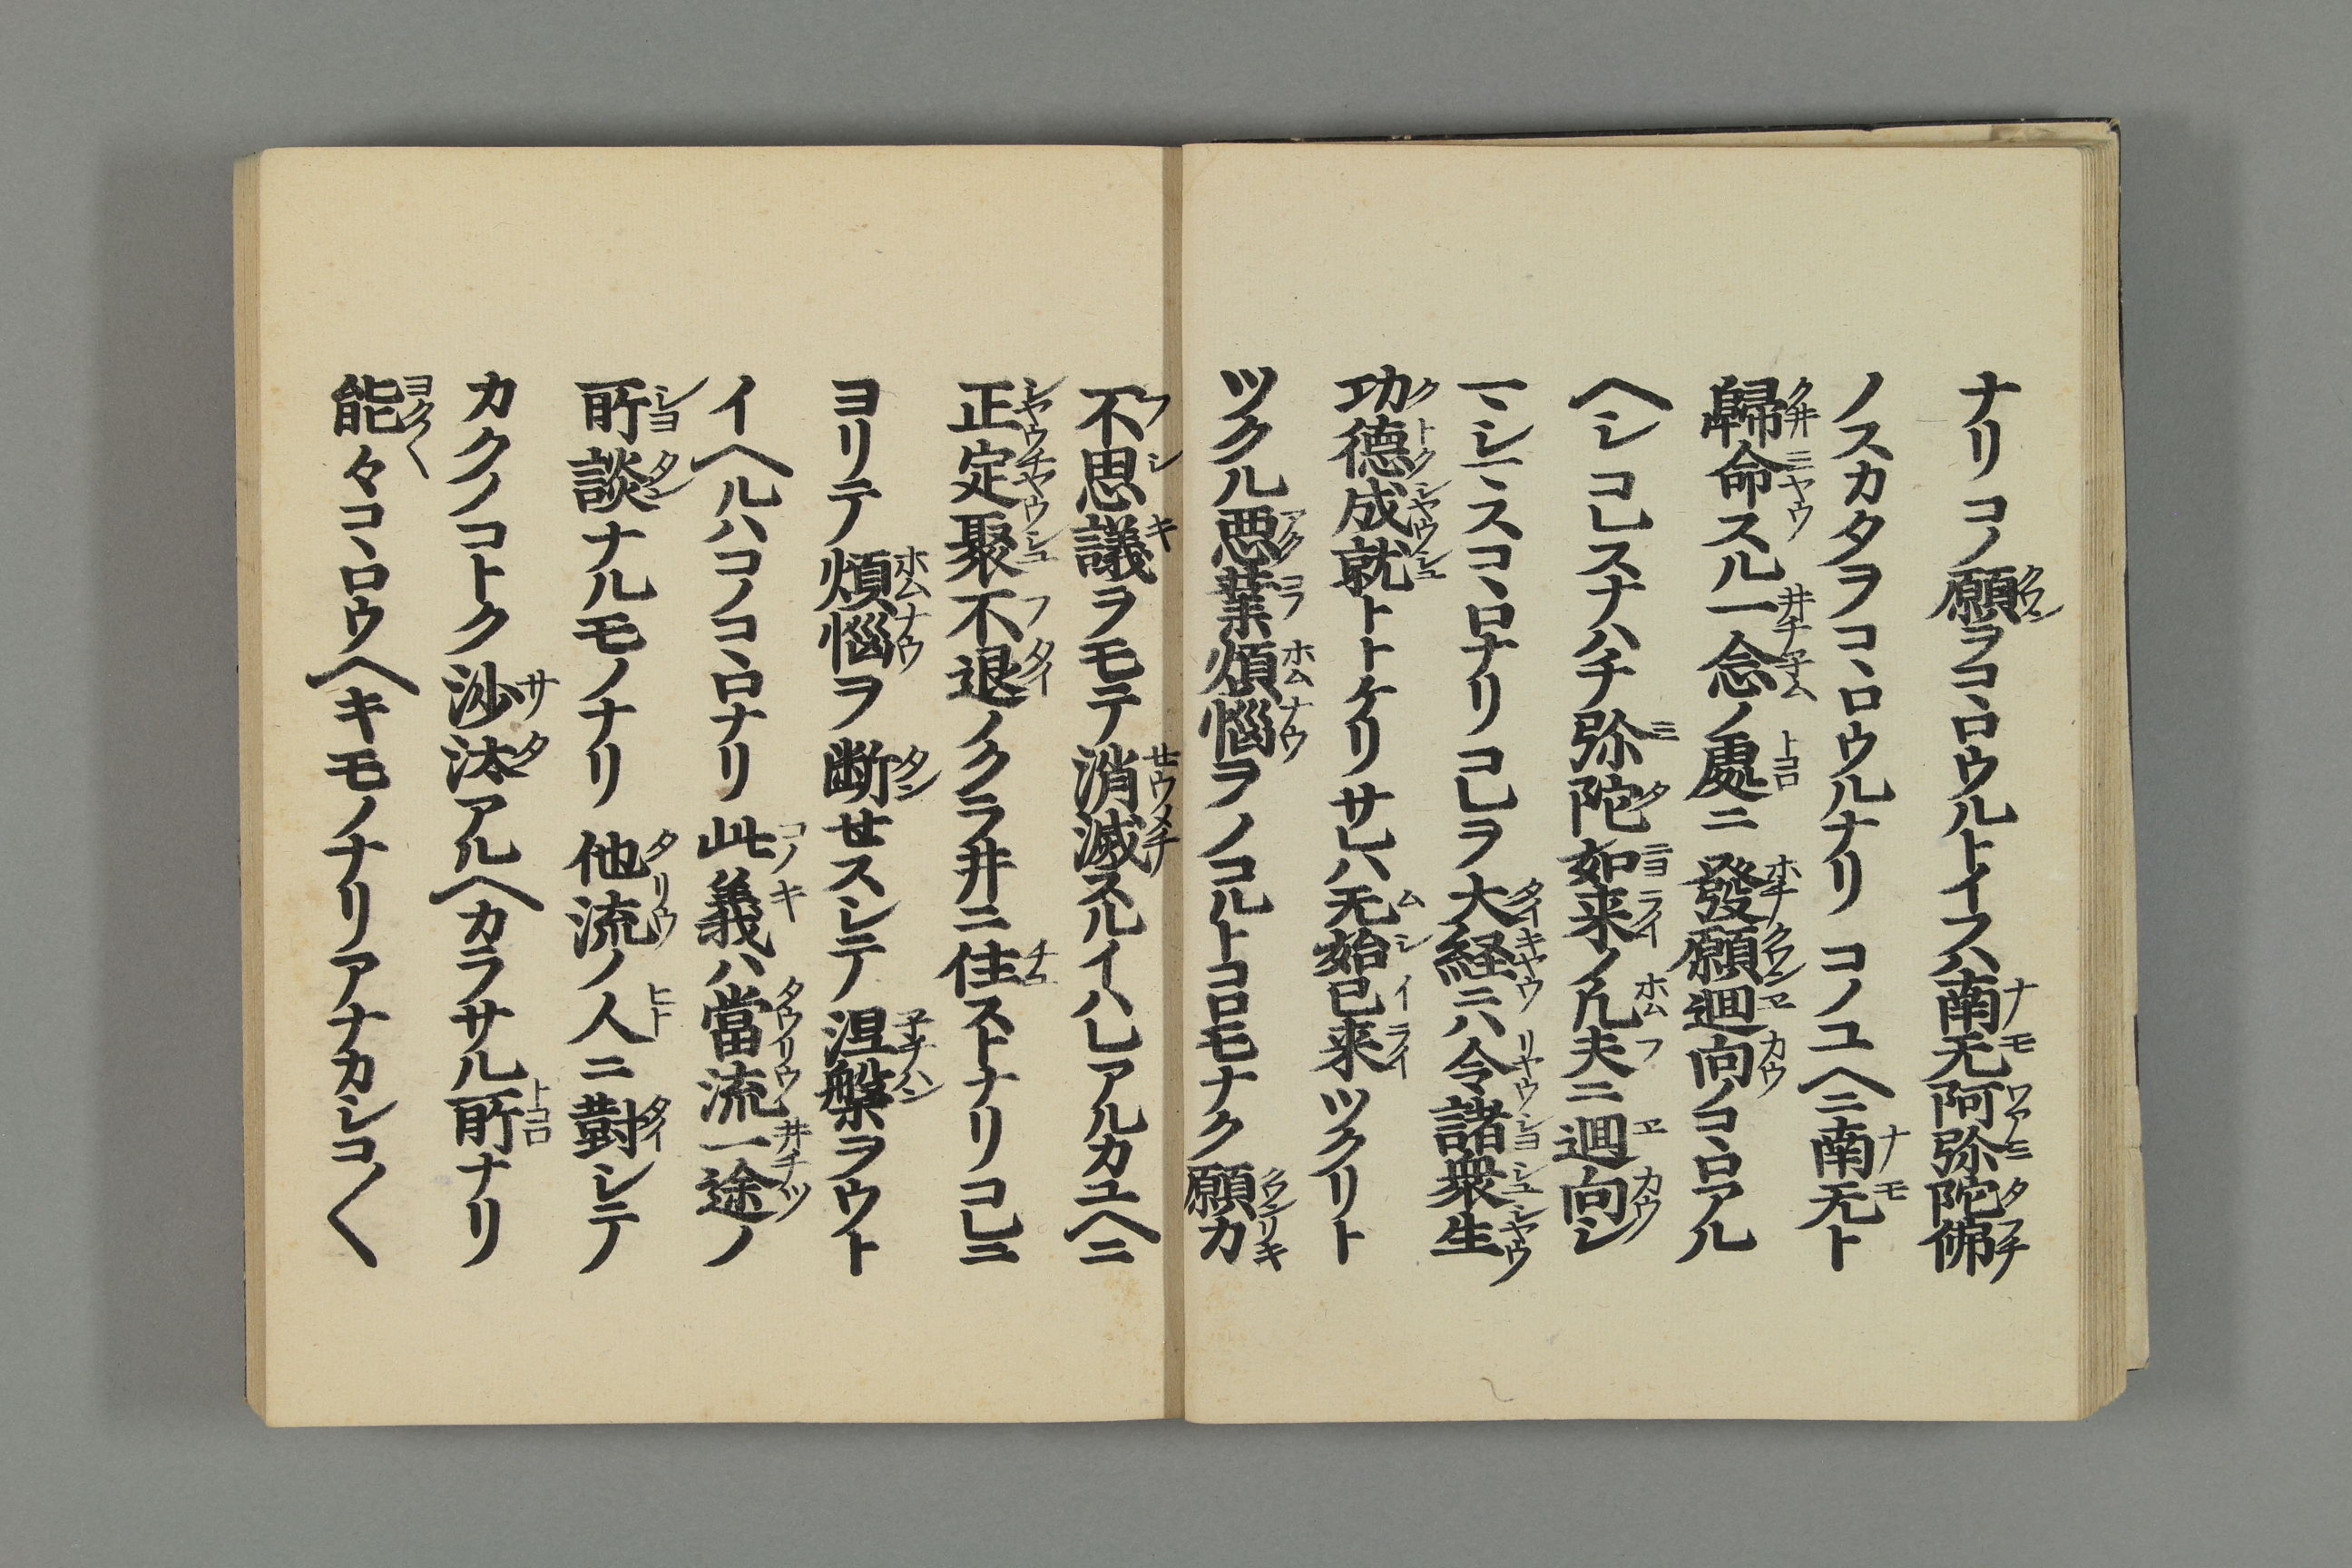 ナリコノ願ヲコヽロウルトイフハ南无阿弥陀佛
ノスカタヲコヽロウルナリコノユヘニ南无ト
歸命スル一念ノ處ニ發願廻向ノコヽロアル
ヘシコレスナハチ弥陀如来ノ凢夫ニ廻向シ
マシマスコヽロナリコレヲ大経ニハ令諸衆生
功德成就トトケリサレハ无始已来ツクリト
ツクル悪業煩惱ヲノコルトコロモナク願力
不思議ヲモテ消滅スルイハレアルカユヘニ
正定聚不退ノクラ井ニ住ストナリコレニ
ヨリテ煩惱ヲ断せスシテ涅槃ヲウト
イヘルハコノコヽロナリ此義ハ當流一途ノ
所談ナルモノナリ他流ノ人ニ對シテ
カクノコトク沙汰アルヘカラサル所ナリ
能々コヽロウヘキモノナリアナカシコ〱